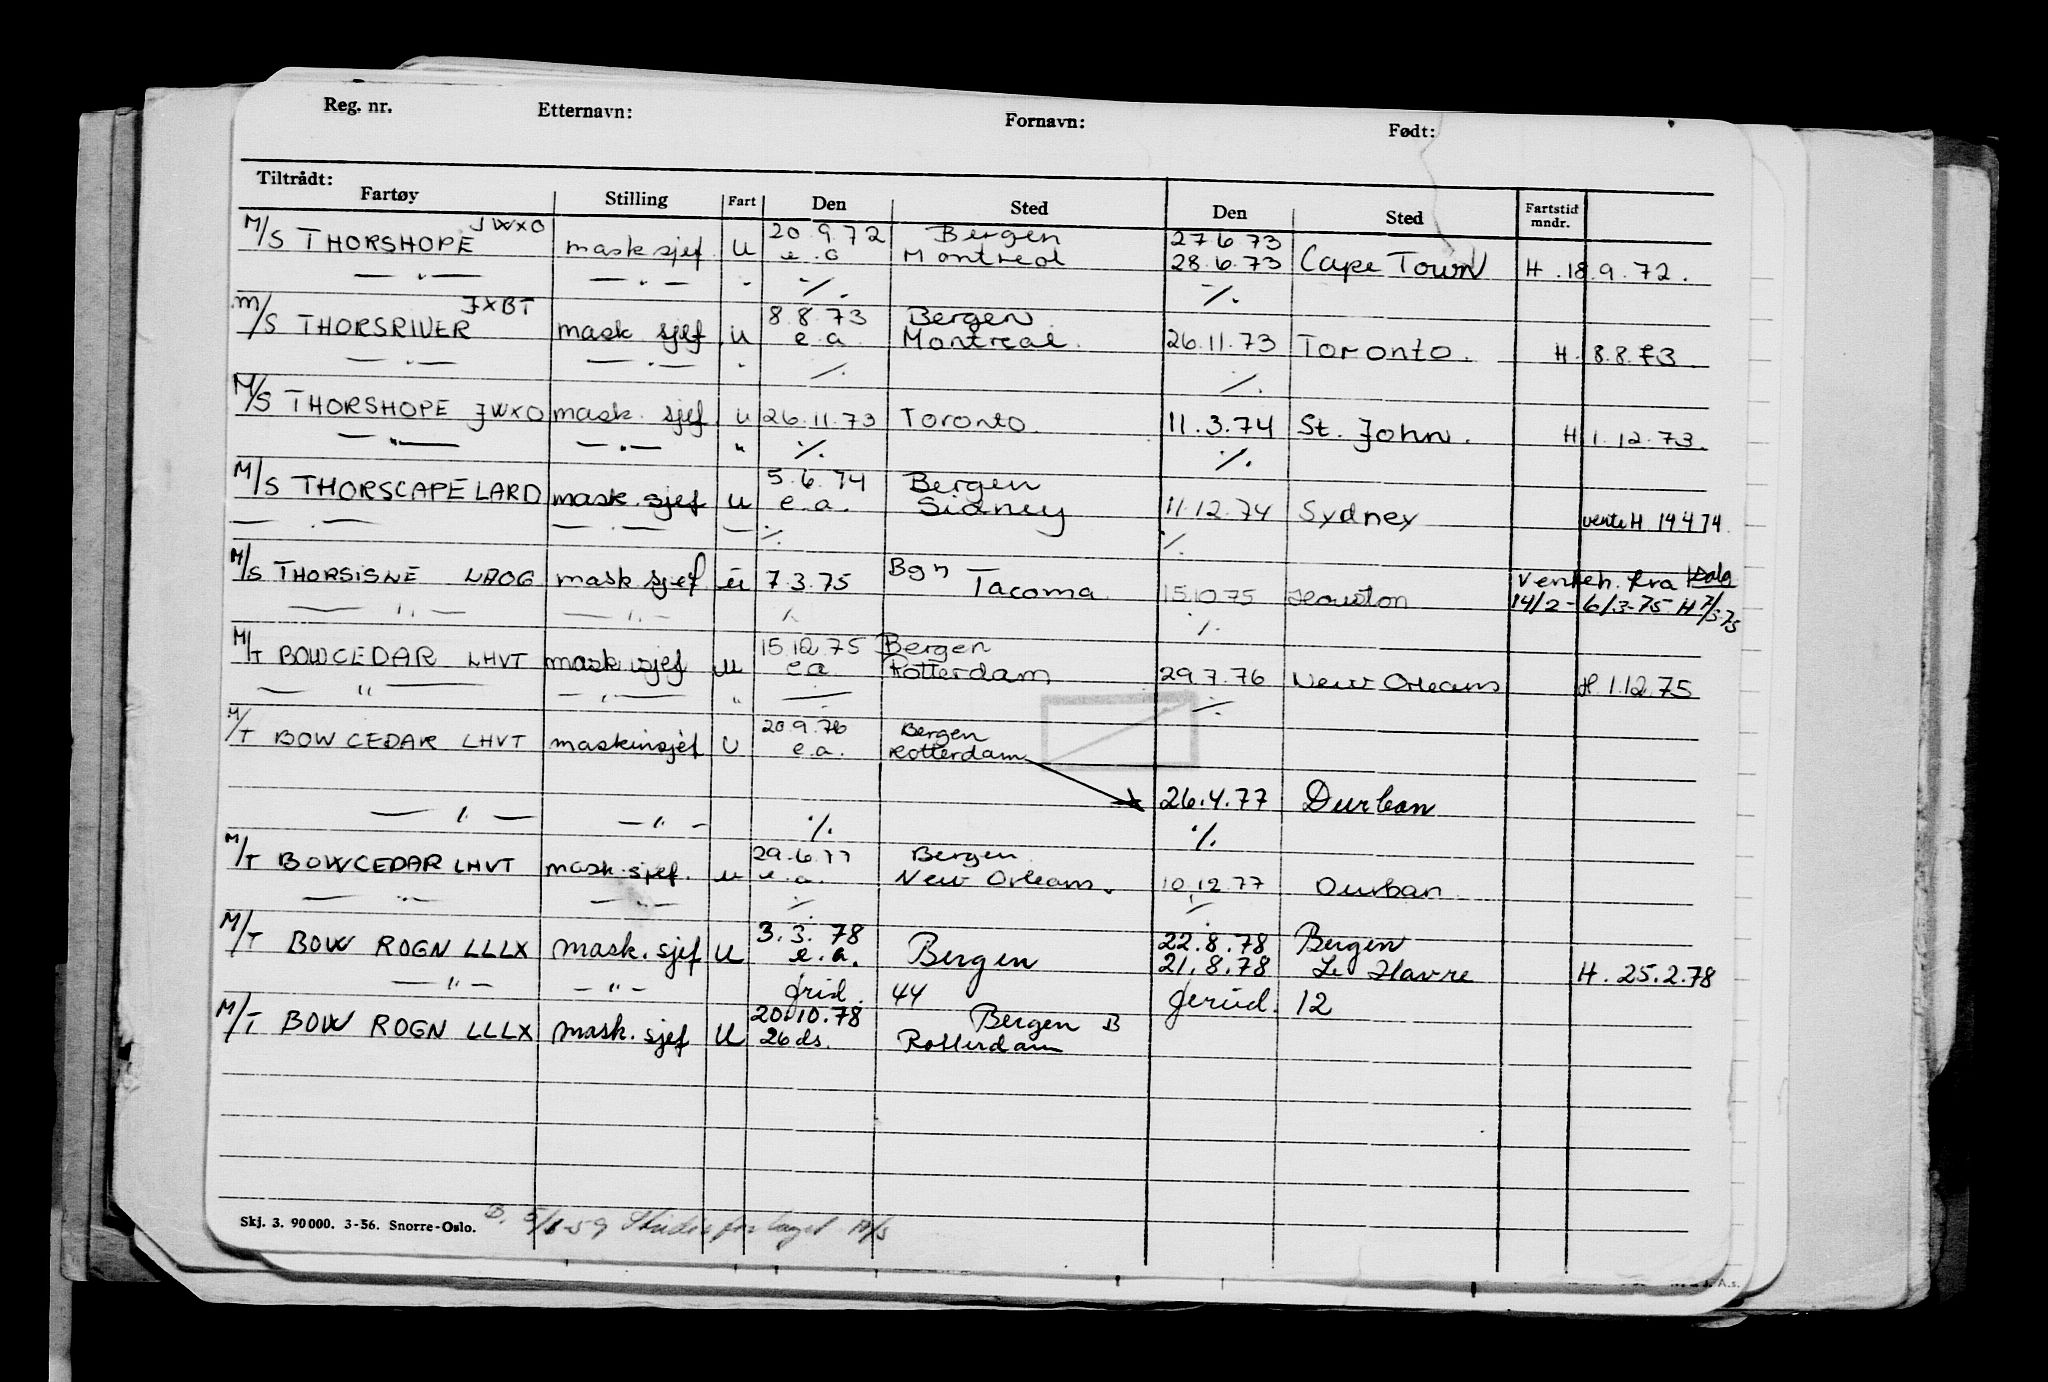 Reg. nr. Etternavn: Fornavn: Født:
Tiltrådt:
Fartøy Stilling Fart Den Sted Den Sted Fartstid mndr.
M/S THORSHOPE JWXO mask sjef U 20.9.72 Bergen 27.6.73
e.a Montreal 28.6.73 Cape Town H. 18.9.72.
— " — — " — " ./. ./.
M/S THORSRIVER JXBT mask sjef u 8.8.73 Bergen
e.a. Montreal. 26.11.73 Toronto. H. 8.8.73.
— " — — " — " ./. ./.
M/S THORSHOPE JWXO mask. sjef. u 26.11.73 Toronto. 11.3.74 St. John. H 1.12.73.
— " — — " — " ./. ./.
M/S THORSCAPE LARD mask. sjef u 5.6.74 Bergen
e.a. Sidney 11.12.74 Sydney vente H 19.4.74.
— " — — " — — ./. ./.
M/S THORSISNE mask. sjef. u 7.3.75 Bgn Tacoma. 15.10.75 Houston Venteh. fra
14/2 - 6/3-75 - H 7/3.75
— " — — " — ./. ./.
M/T BOWCEDAR LHVT mask. sjef u 15.12.75 Bergen
e.a Rotterdam 29.7.76 New Orleans H. 1.12.75
— " — — " — " ./. ./.
M/T BOW CEDAR LHVT maskinsjef U 20.9.76 Bergen
e.a. Rotterdam
26.4.77 Durban
— " — — " — ./. ./.
M/T BOWCEDAR LHVT mask. sjef. u 29.6.77 Bergen
e.a. New Orleans. 10.12.77 Durban.
— " — — " — ./. ./.
M/T BOW ROGN LLLX mask. sjef U 3.3.78 22.8.78 Bergen
e.a. Bergen 21.8.78 Le Havre H. 25.2.78
— " — — " — 44 12
M/T BOW ROGN LLLX mask. sjef U 20.10.78 Bergen B
26 ds. Rotterdam
Skj. 3. 90000. 3-56. Snorre-Oslo.